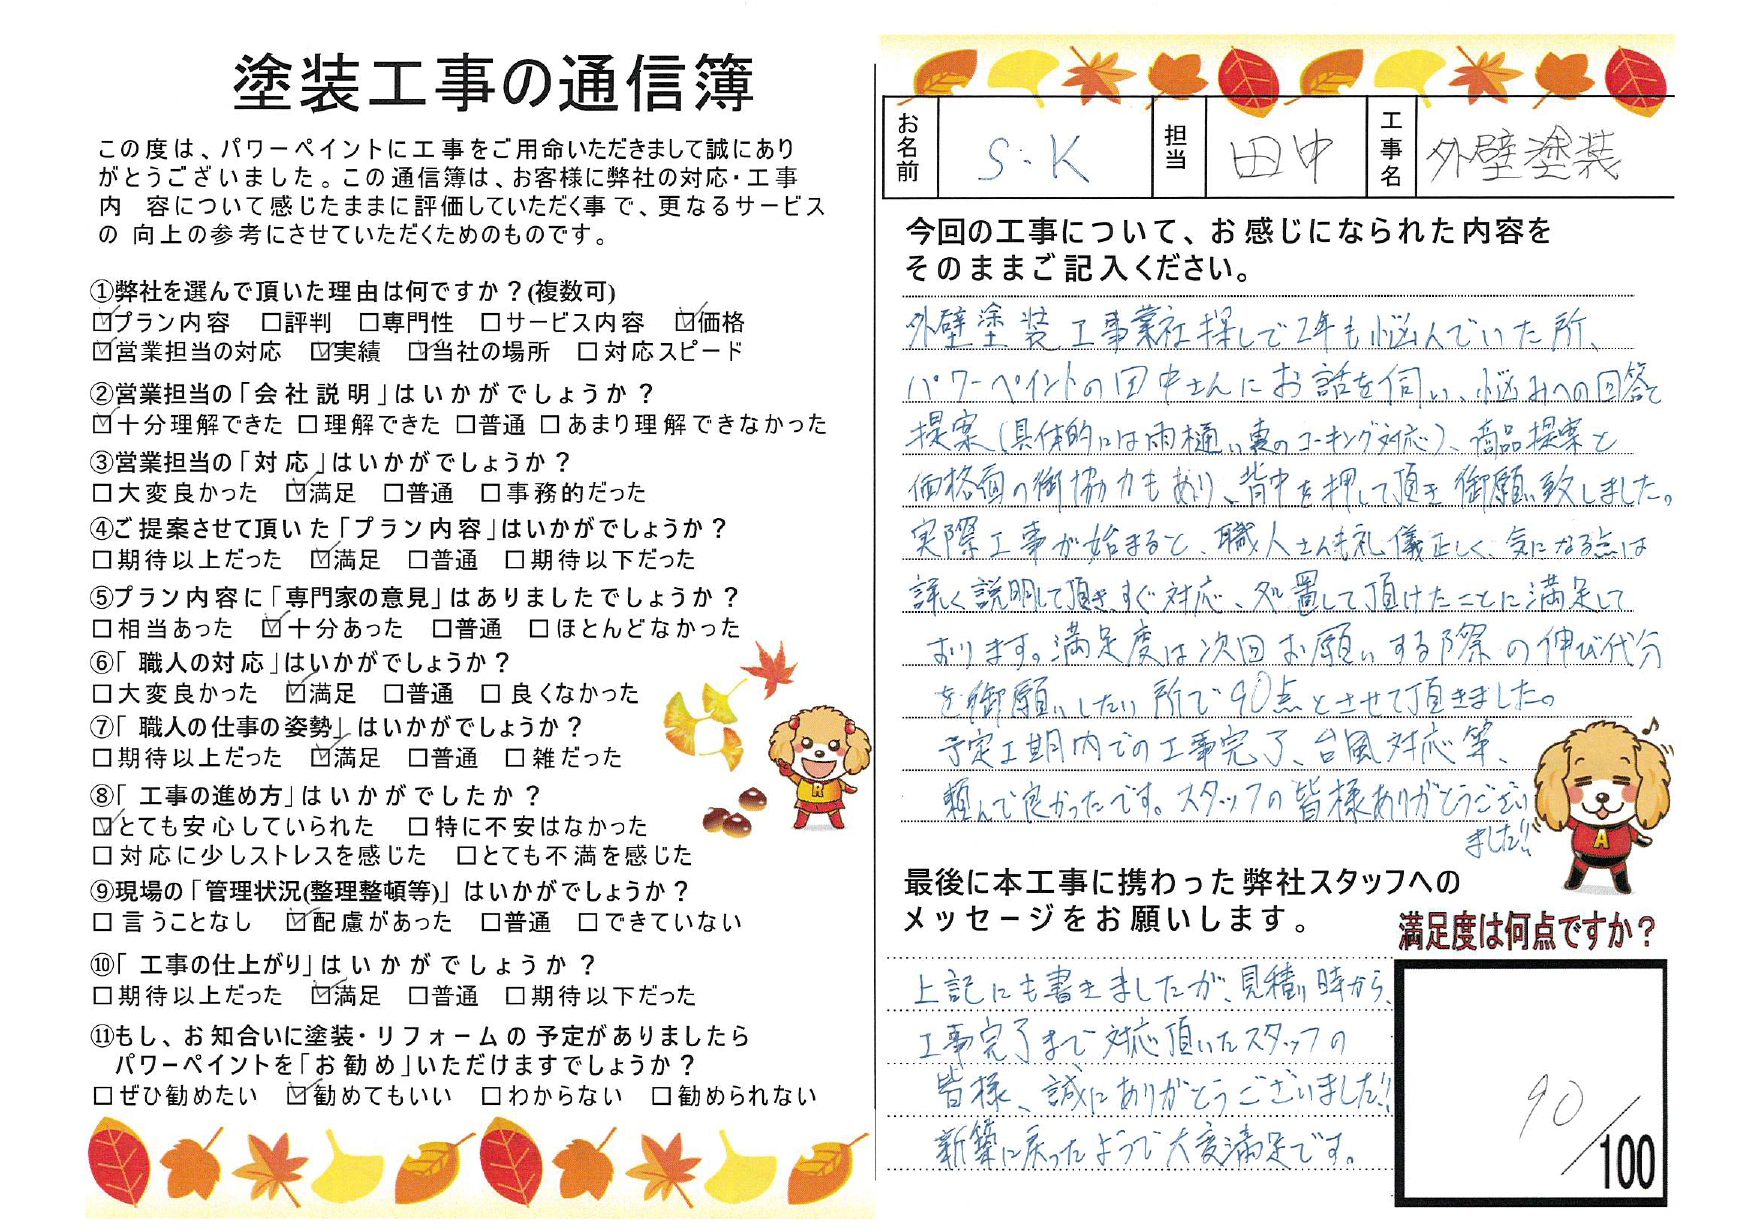 塗装工事の通信簿
この度は、パワーペイントに工事をご用命いただきまして誠にあり
がとうございました。この通信簿は、お客様に弊社の対応・工事
内　容について感じたままに評価していただく事で、更なるサービス
の 向上の参考にさせていただくためのものです。
①弊社を選んで頂いた理由は何ですか？(複数可)
☑プラン内容　□評判　□専門性　□サービス内容　☑価格
☑営業担当の対応　☑実績　☑当社の場所　□対応スピード
②営業担当の「会社説明」はいかがでしょうか？
☑十分理解できた □理解できた □普通 □あまり理解できなかった
③営業担当の「対応」はいかがでしょうか？
□大変良かった　☑満足　□普通　□事務的だった
④ご提案させて頂いた「プラン内容」はいかがでしょうか？
□期待以上だった　☑満足　□普通　□期待以下だった
⑤プラン内容に「専門家の意見」はありましたでしょうか？
□相当あった　☑十分あった　□普通　□ほとんどなかった
⑥「職人の対応」はいかがでしょうか？
□大変良かった　☑満足　□普通　□良くなかった
⑦「職人の仕事の姿勢」はいかがでしょうか？
□期待以上だった　☑満足　□普通　□雑だった
⑧「工事の進め方」はいかがでしたか？
☑とても安心していられた　□特に不安はなかった
□対応に少しストレスを感じた　□とても不満を感じた
⑨現場の「管理状況(整理整頓等)」はいかがでしょうか？
□言うことなし　☑配慮があった　□普通　□できていない
⑩「工事の仕上がり」はいかがでしょうか？
□期待以上だった　☑満足　□普通　□期待以下だった
⑪もし、お知合いに塗装・リフォームの予定がありましたら
パワーペイントを「お勧め」いただけますでしょうか？
□ぜひ勧めたい　☑勧めてもいい　□わからない　□勧められない
R
お名前　S・K　担当　田中　工事名　外壁塗装
今回の工事について、お感じになられた内容を
そのままご記入ください。
外壁塗装工事業社探しで2年も悩んでいた所、
パワーペイントの田中さんにお話を伺い、悩みへの回答と
提案(具体的には雨樋い裏のコーキング対応)、商品提案と
価格面の御協力もあり、背中を押して頂き御願い致しました。
実際工事が始まると、職人さんも礼儀正しく、気になる点は
詳しく説明して頂き、すぐ対応、処置して頂けたことに満足して
おります。満足度は次回お願いする際の伸び代分
を御願いしたい所で90点とさせて頂きました。
予定工期内での工事完了、台風対応等、
頼んで良かったです。スタッフの皆様ありがとうござい
ました!!
A
最後に本工事に携わった弊社スタッフへの
メッセージをお願いします。
上記にも書きましたが、見積り時から、
工事完了まで対応頂いたスタッフの
皆様、誠にありがとうございました!!
新築に戻ったようで大変満足です。
満足度は何点ですか？
90/100